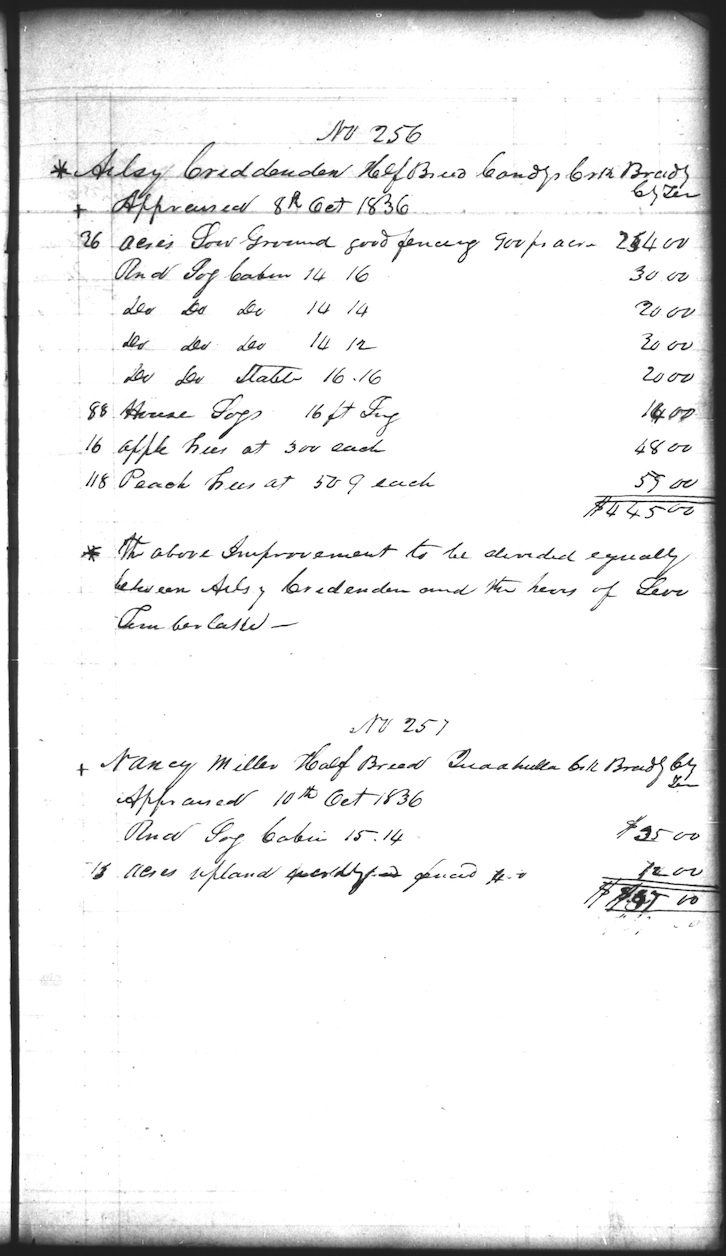 No 256
* Ailsy Criddenden Half Breed Candys Crk Bradly
Cty Ten
+ Appraised 8th Oct 1836
26 acres Low Ground good fencing 900 pr acre 234 00
Rnd Log Cabin 14 16 30 00
Do Do Do 14 14 20 00
Do Do Do 14 12 20 00
Do Do Stable 16.16 20 00
88 House Logs 16 ft Lng 14 00
16 apple trees at 300 each 48 00
118 Peach trees at 50 each 59 00
$445 00
* The above Improvement to be devided equally
between Ailsy Credenden and the heirs of Levi
Timberlake —
No 257
+ Nancy Miller Half Breed Crk Bradly Cty
Ten
Appraised 10th Oct 1836
Rnd Log Cabin 15.14 $35 00
acres upland fenced 00
00